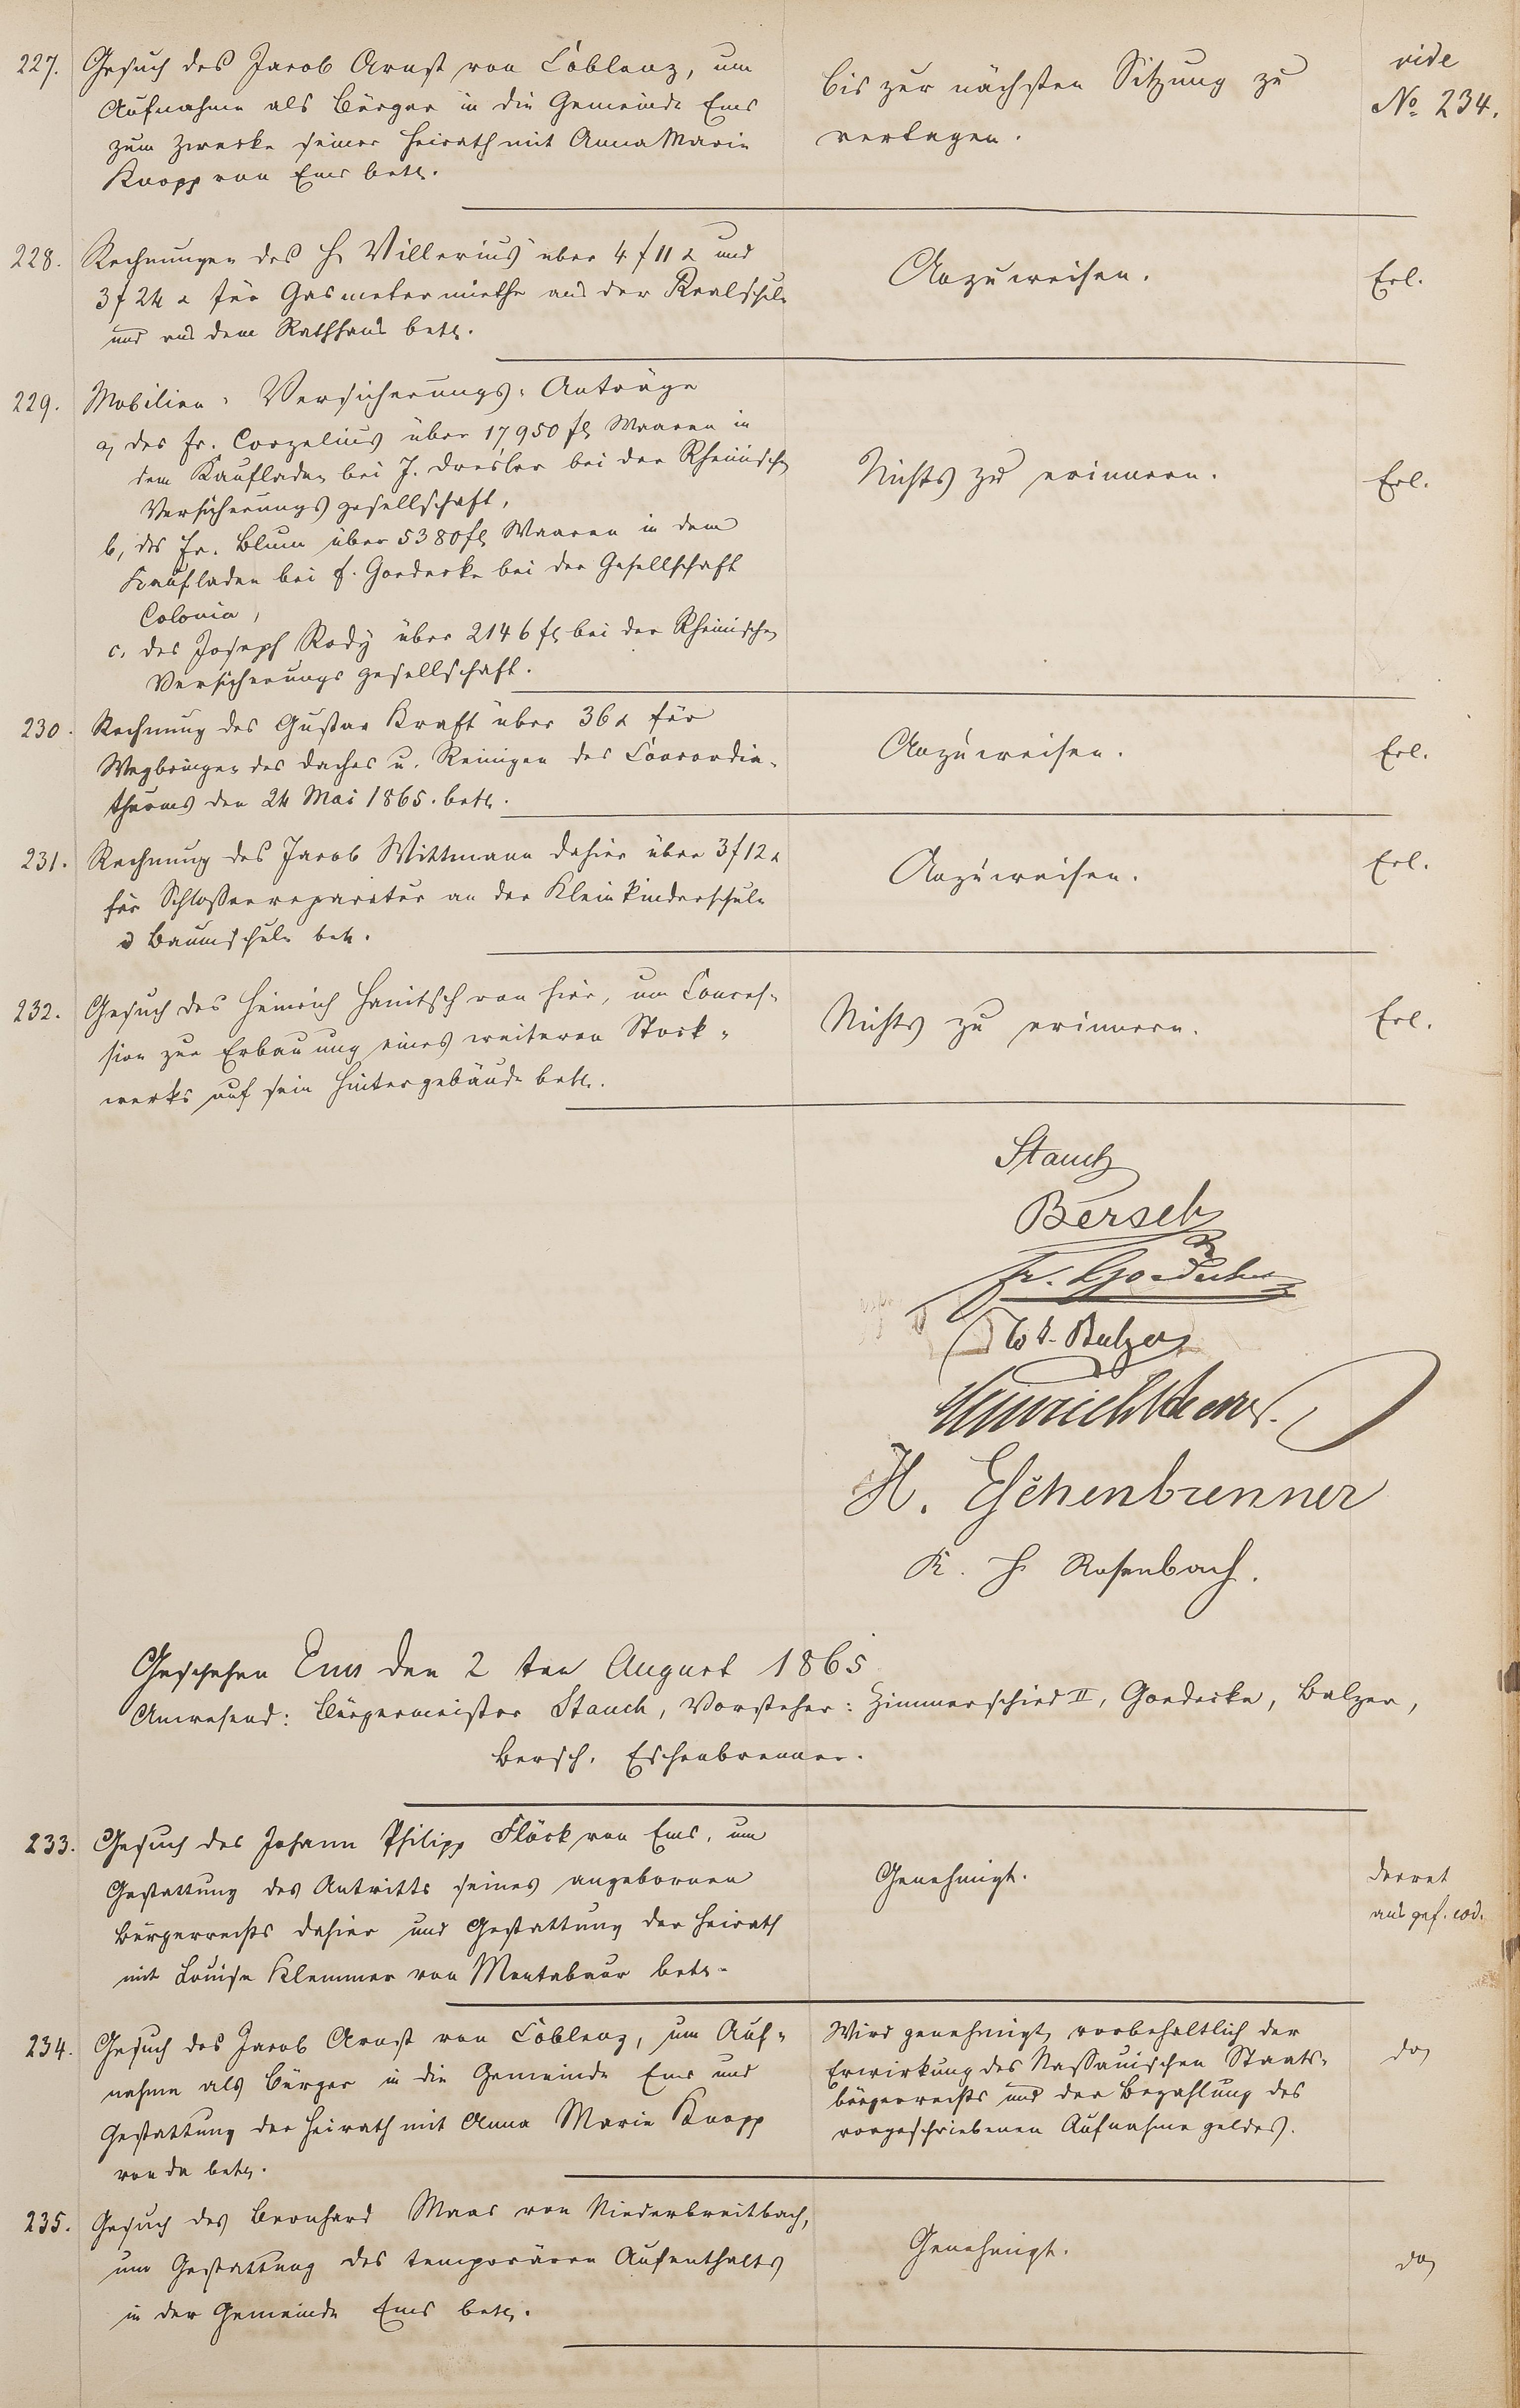 227. Gesuch des Jacob Arnst von Coblenz, um
Aufnahme als Bürger in die Gemeinde Ems
zum Zwecke seiner Heirath mit Anna Maria
Knopp von Ems betr.
bis zur nächsten Sitzung zu
vertagen.
vide
No. 234.
228. Rechnungen des H. Villerius über 4 f 11 x und
3 f 24 x für Gasmetermiethe aus der Realschule
und aus dem Rathhaus betr.
Anzuweisen.
Erl.
229. Mobilien-Versicherungs-Anträge
a, des Fr. Corzelius über 17950 fl Waaren in
dem Kaufladen bei J. Dresler bei der Rheinischen
Versicherungsgesellschaft,
b, des Fr. Blum über 5380 fl Waaren in dem
Kaufladen bei F. Goedecke bei der Gesellschaft
Colonia,
c. des Joseph Rody über 2146 fl bei der Rheinischen
Versicherungsgesellschaft.
Nichts zu erinnern.
Erl.
230. Rechnung des Gustav Kraft über 36 x für
Wegbringen des Daches u. Reinigen des Concordia-
thurms den 24 Mai 1865. betr.
Anzuweisen.
Erl.
231. Rechnung des Jacob Wittmann dahier über 3 f 12 x
für Schlosserreparatur an der Kleinkinderschule
d Baumschule betr.
Anzuweisen.
Erl.
232. Gesuch des Heinrich Hanitsch von hier, um Conces-
sion zur Erbauung eines weiteren Stock-
werks auf sein Hintergebäude betr.
Nichts zu erinnern.
Erl.
Stauch
Bersch
Fr. Goedecke
Balzer
Heinrich
H. Eschenbrenner
K. H. Rosenbach.
Geschehen Ems den 2 ten August 1865
Anwesend: Bürgermeister Stauch, Vorsteher: Zimmerschied II, Goedecke, Balzer,
Bersch, Eschenbrenner.
233. Gesuch des Johann Philipp Flöck von Ems, um
Gestattung des Antritts seines angebornen
Bürgerrechts dahier und Gestattung der Heirath
mit Louise Klemmer von Montabaur betr.
Genehmigt.
Decret
ausgef. eod.
234. Gesuch des Jacob Arnst von Coblenz, um Auf-
nahme als Bürger in die Gemeinde Ems und
Gestattung der Heirath mit Anna Maria Knopp
von da betr.
Wird genehmigt, vorbehaltlich der
Erwirkung des Nassauischen Staats-
bürgerrechts und der Bezahlung des
vorgeschriebenen Aufnahmegeldes.
do
235. Gesuch des Bernhard Maas von Niederbreitbach,
um Gestattung des temporären Aufenthalts
in der Gemeinde Ems betr.
Genehmigt.
do